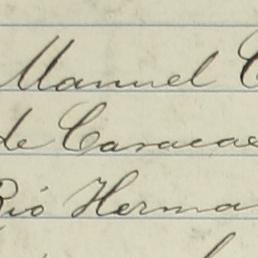 Manuel C
de Caracas
Rió Herma